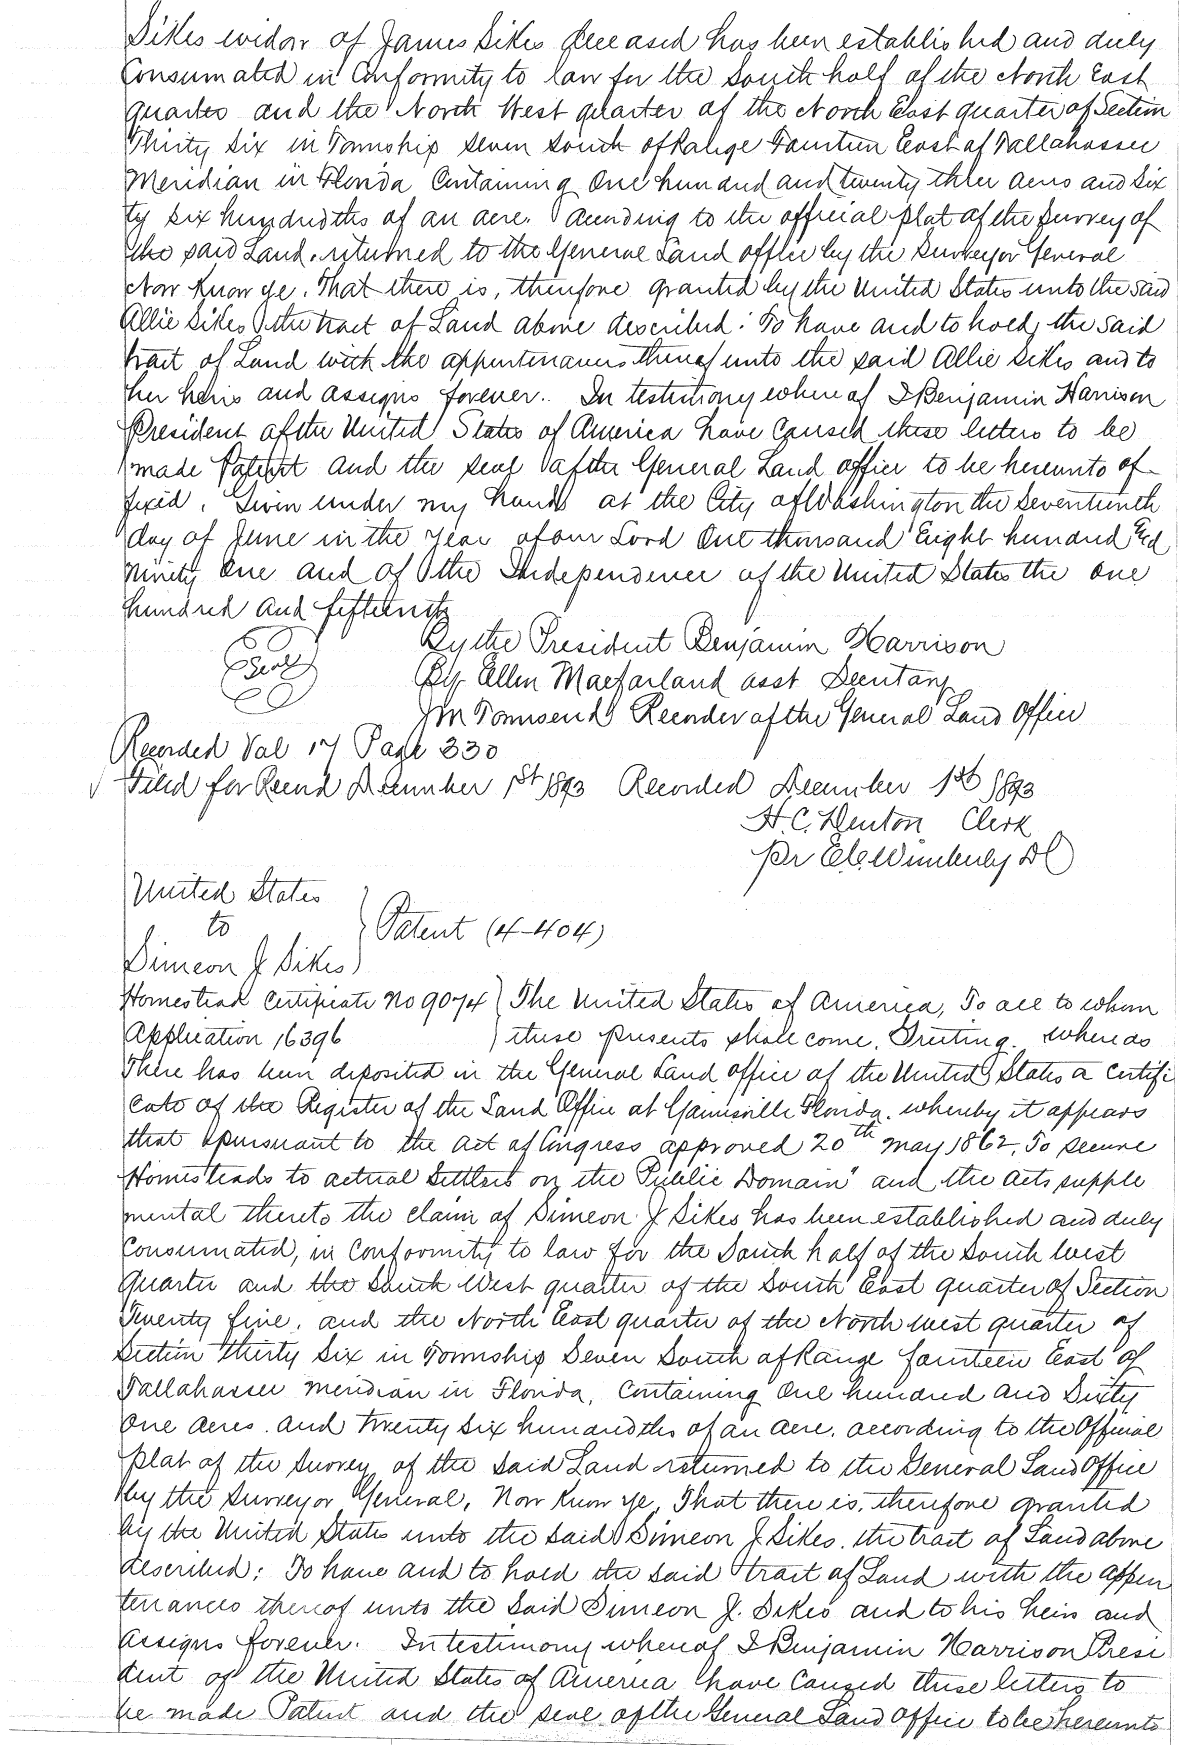 Sikes widow of James Sikes deceased has been established and duly
Consumated in Conformity to law for the South half of the North East
quarter and the North West quarter of the North East quarter of Section
Thirty Six in Township seven south of Range Fourteen East of Tallahassee
Meridian in Florida Containing One hundred and twenty three acres and Six
ty six hundredths of an acre. According to the official plat of the Survey of
the said Land, returned to the General Land office by the Surveyor General
Now Know ye, That there is, therefore granted by the United States unto the said
Allie Sikes the tract of Land above described: To have and to hold the said
tract of Land with the appurtenances thereof unto the said Allie Sikes and to
her heirs and assigns forever. In testimony where of I Benjamin Harrison
President of the United States of America have caused these letters to be
made Patent and the seal of the General Land office to be hereunto af-
fixed. Given under my hand at the City of Washington the Seventeenth
day of June in the year of our Lord One thousand Eight hundred and
Ninety One and of the Independence of the United States the one
hundred and fifteenth
By the President Benjamin Harrison
Seal
By Ellen Macfarland asst Secretary
J M Townsend Recorder of the General Land Office
Recorded Vol 17 Page 330
✓ Filed for Record December 1st 1893 Recorded December 1st 1893
H. C. Denton Clerk
Pr E. C. Wimberly DC
United States
to
Patent (4-404)
Simeon J Sikes
Homestead Certificate No 9074 The United States of America, To all to whom
Application 16396 these presents shall come, Greeting. whereas
There has been deposited in the General Land office of the United States a certifi
cate of the Register of the Land Office at Gainesville Florida. whereby it appears
that pursuant to the act of Congress approved 20th May 1862, To secure
Homesteads to actual Settlers on the Public Domain" and the acts supple
mental thereto the claim of Simeon J Sikes has been established and duly
Consumated, in Conformity to law for the South half of the South West
Quarter and the South West quarter of the South East quarter of Section
Twenty five, and the North East quarter of the North west quarter of
Section thirty Six in Township Seven South of Range fourteen East of
Tallahassee meridian in Florida, Containing One hundred and Sixty
One acres and Twenty Six hundredths of an acre, according to the Official
plat of the Survey of the Said Land returned to the General Land Office
by the Surveyor General, Now Know ye, That there is, therefore granted
by the United States unto the said Simeon J Sikes. the tract of Land above
described: To have and to hold the said tract of Land with the appur
tenances thereof unto the Said Simeon J. Sikes and to his heirs and
assigns forever. In testimony whereof I Benjamin Harrison Presi
dent of the United States of America have caused these letters to
be made Patent and the seal of the General Land Office to be hereunto